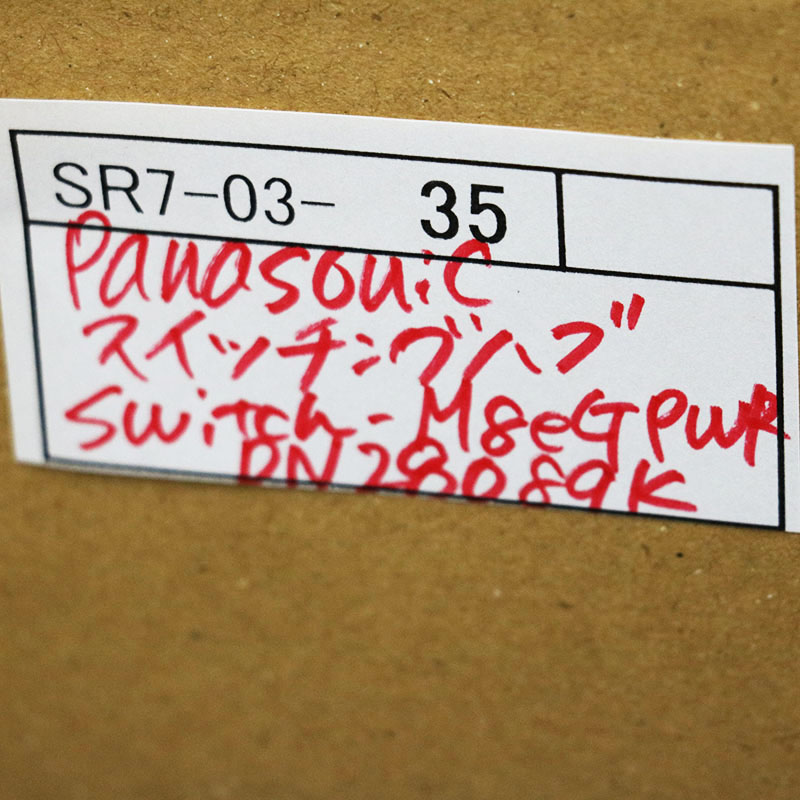 SR7-03- 35
Panasonic
スイッチングハブ
Switch-M8eGPWR
PN28089K